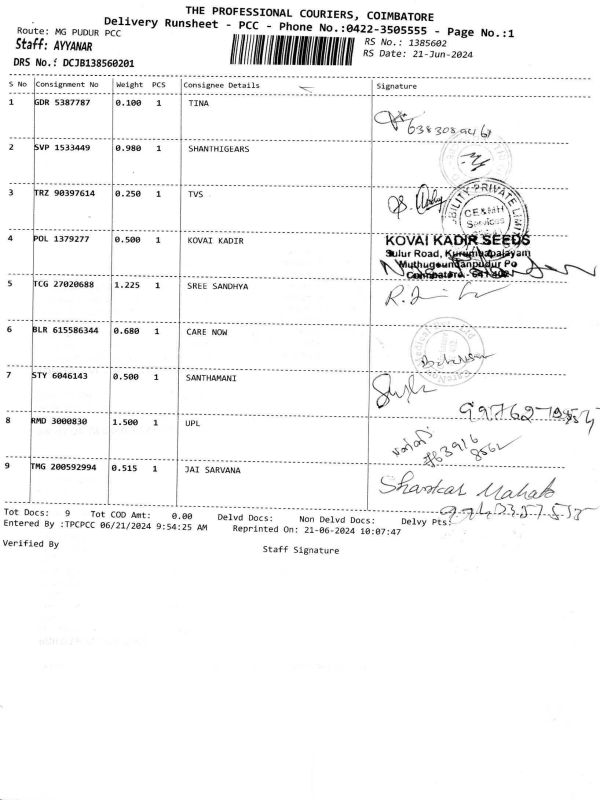 THE PROFESSIONAL COURIERS, COIMBATORE
Delivery Runsheet - PCC - Phone No.:0422-3505555 - Page No.:1
Route: MG PUDUR PCC
RS No.: 1385602
Staff: AYYANAR
RS Date: 21-Jun-2024
DRS No.: DCJB138560201
S No Consignment No Weight PCS Consignee Details Signature
1 GDR 5387787 0.100 1 TINA
2 SVP 1533449 0.980 1 SHANTHIGEARS
3 TRZ 90397614 0.250 1 TVS
BILITY PRIVATE LIMIT
CE & MH
Services
4 POL 1379277 0.500 1 KOVAI KADIR
KOVAI KADIR SEEDS
Sulur Road, Kurumbapalayam
Muthugoundanpudur Po
Coimbatore - 641 406
5 TCG 27020688 1.225 1 SREE SANDHYA
6 BLR 615586344 0.680 1 CARE NOW
7 STY 6046143 0.500 1 SANTHAMANI
8 RMD 3000830 1.500 1 UPL
9 TMG 200592994 0.515 1 JAI SARVANA
Shankar Mahato
Tot Docs: 9 Tot COD Amt: 0.00 Delvd Docs: Non Delvd Docs: Delvy Pts:
Entered By :TPCPCC 06/21/2024 9:54:25 AM Reprinted On: 21-06-2024 10:07:47
Verified By Staff Signature